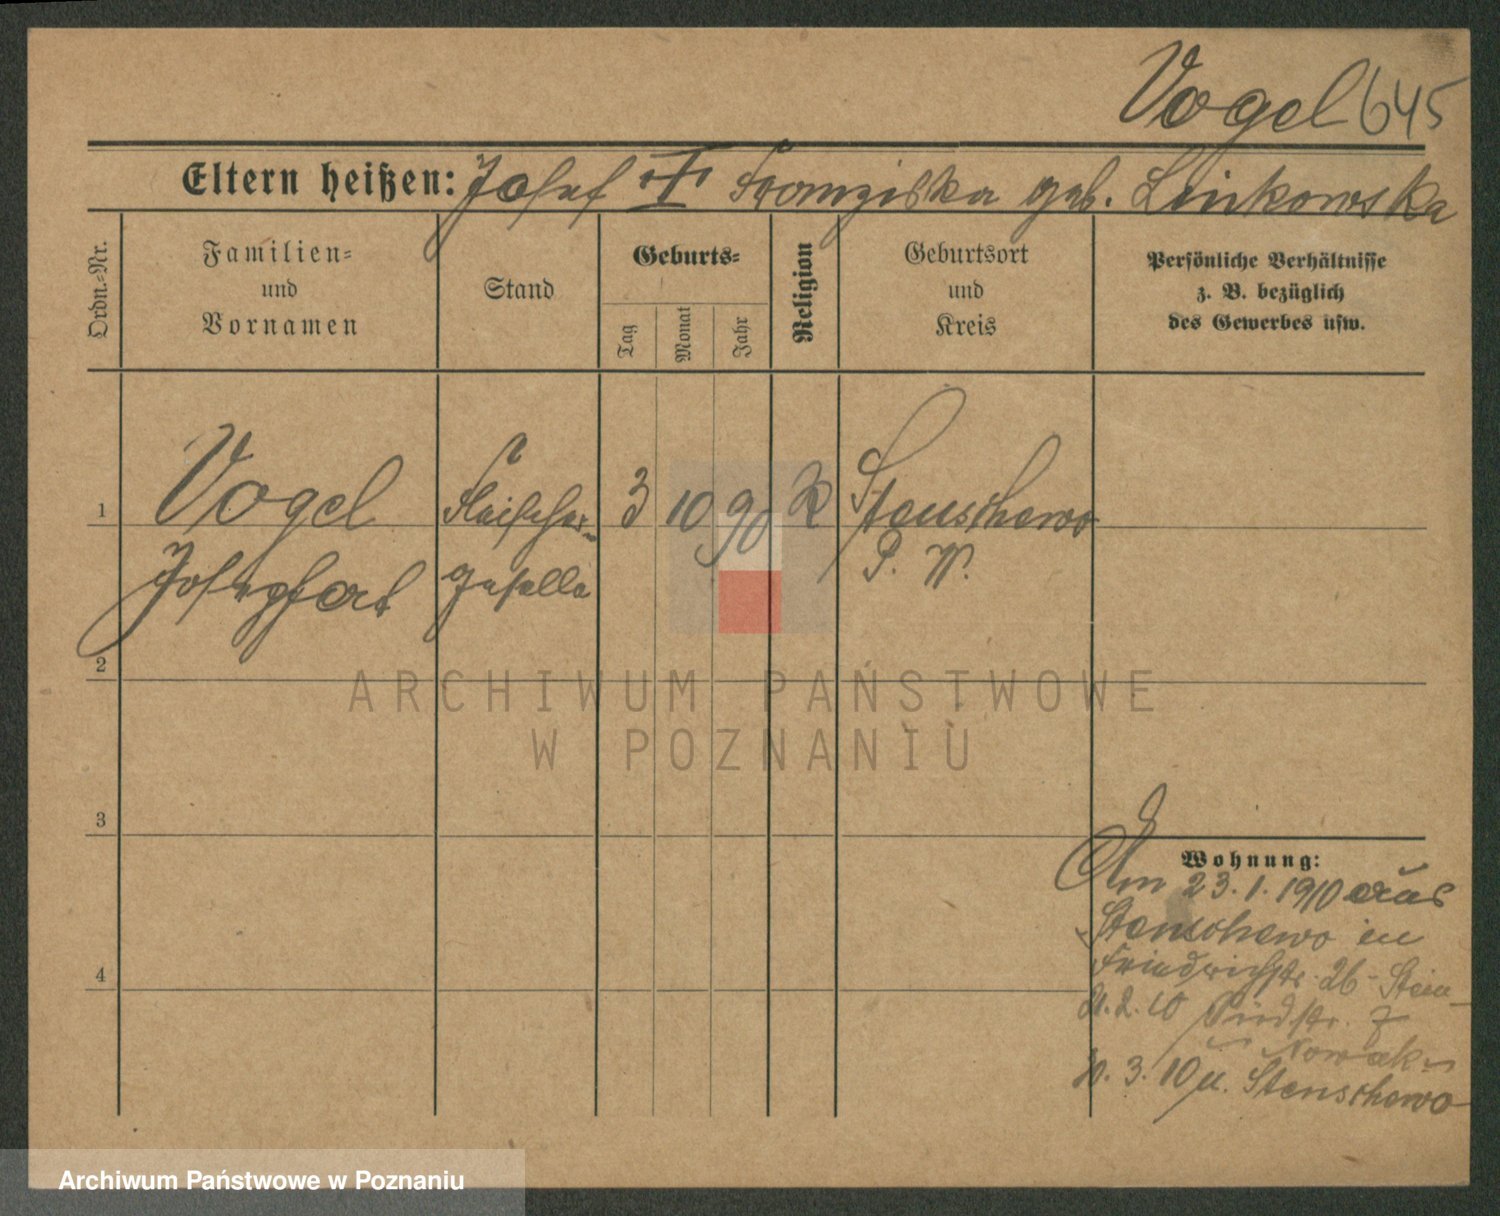 Vogel 645
Eltern heißen: Josef + Franziska geb. Linkowska
Ordn.-Nr.
Familien-
und
Vornamen
Stand
Geburts-
Tag
Monat
Jahr
Religion
Geburtsort
und
Kreis
Persönliche Verhältnisse
z. B. bezüglich
des Gewerbes usw.
1
Vogel
Fleischer-
geselle
3
10
90
K
Stenschewo
P. W.
2
3
4
Wohnung:
Am 23. 1. 1910 aus
Stenschewo in
Friedrichstr. 26 - Stein
2. 10
7
Nowak
3. 10 u. Stenschewo
ARCHIWUM PAŃSTWOWE
W POZNANIU
Archiwum Państwowe w Poznaniu